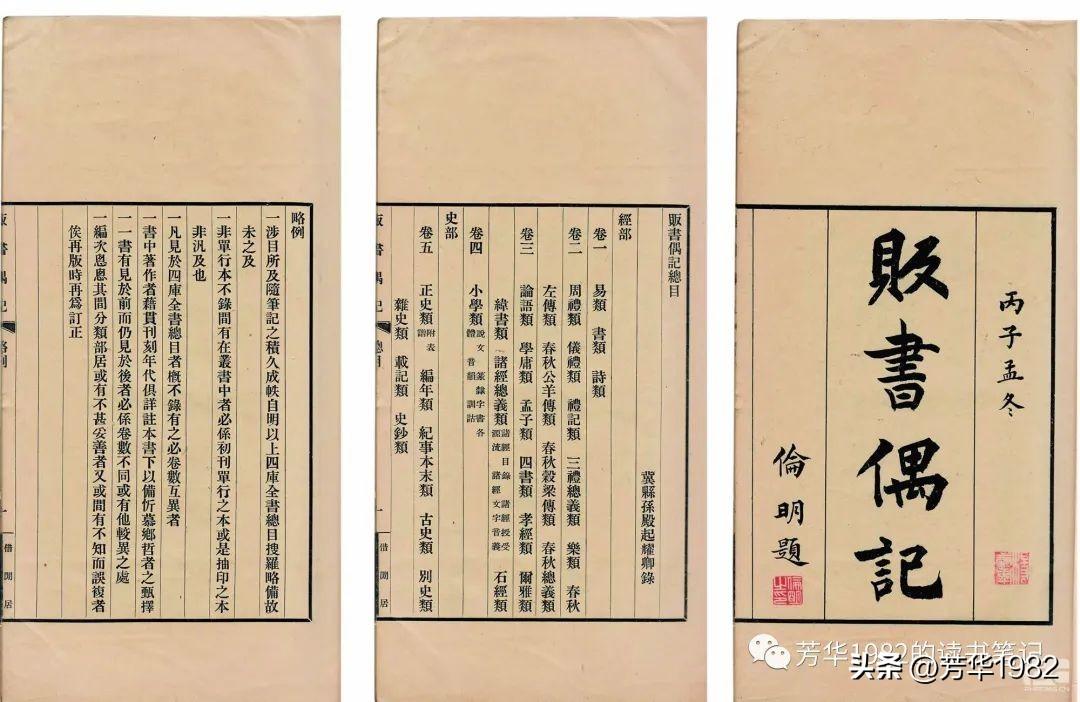 販書偶記
丙子孟冬
倫明題
販書偶記總目
冀縣孫殿起耀卿錄
經部
卷一 易類 書類 詩類
卷二 周禮類 儀禮類 禮記類 三禮總義類 樂類 春秋
左傳類 春秋公羊傳類 春秋穀梁傳類 春秋總義類
卷三 論語類 學庸類 孟子類 四書類 孝經類 爾雅類
緯書類 諸經總義類 諸經目錄 諸經授受源流 諸經文字音義 石經類
卷四 小學類 說文 篆隸字書各體 音韻 訓詁
史部
卷五 正史類 附表譜 編年類 紀事本末類 古史類 別史類
雜史類 載記類 史鈔類
總目
一
借閒居
略例
一涉目所及隨筆記之積久成帙自明以上四庫全書總目搜羅略備故
未之及
一非單行本不錄間有在叢書中者必係初刊單行之本或是抽印之本
非汎及也
一凡見於四庫全書總目者概不錄有之必卷數互異者
一書中著作者藉貫刊刻年代俱詳註本書下以備忻慕鄉哲者之甄擇
一一書有見於前而仍見於後者必係卷數不同或有他較異之處
一編次悤悤其間分類部居或有不甚妥善者又或間有不知而誤複者
俟再版時再爲訂正
販書偶記
略例
一
借閒居
芳华1982的读书笔记
头条 @芳华1982